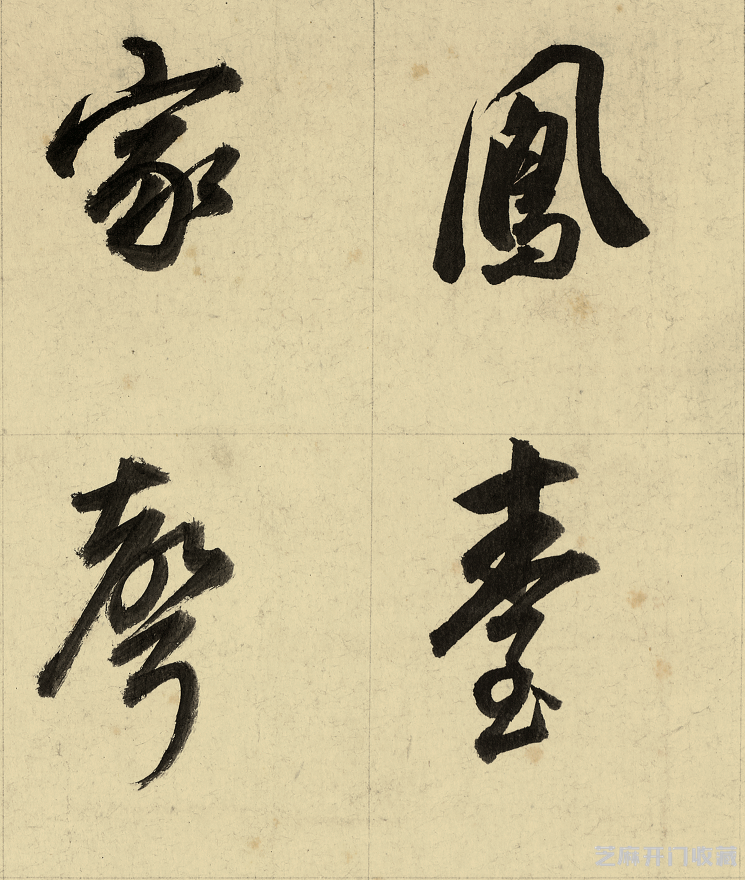 鳳臺
家聲
芝麻开门收藏